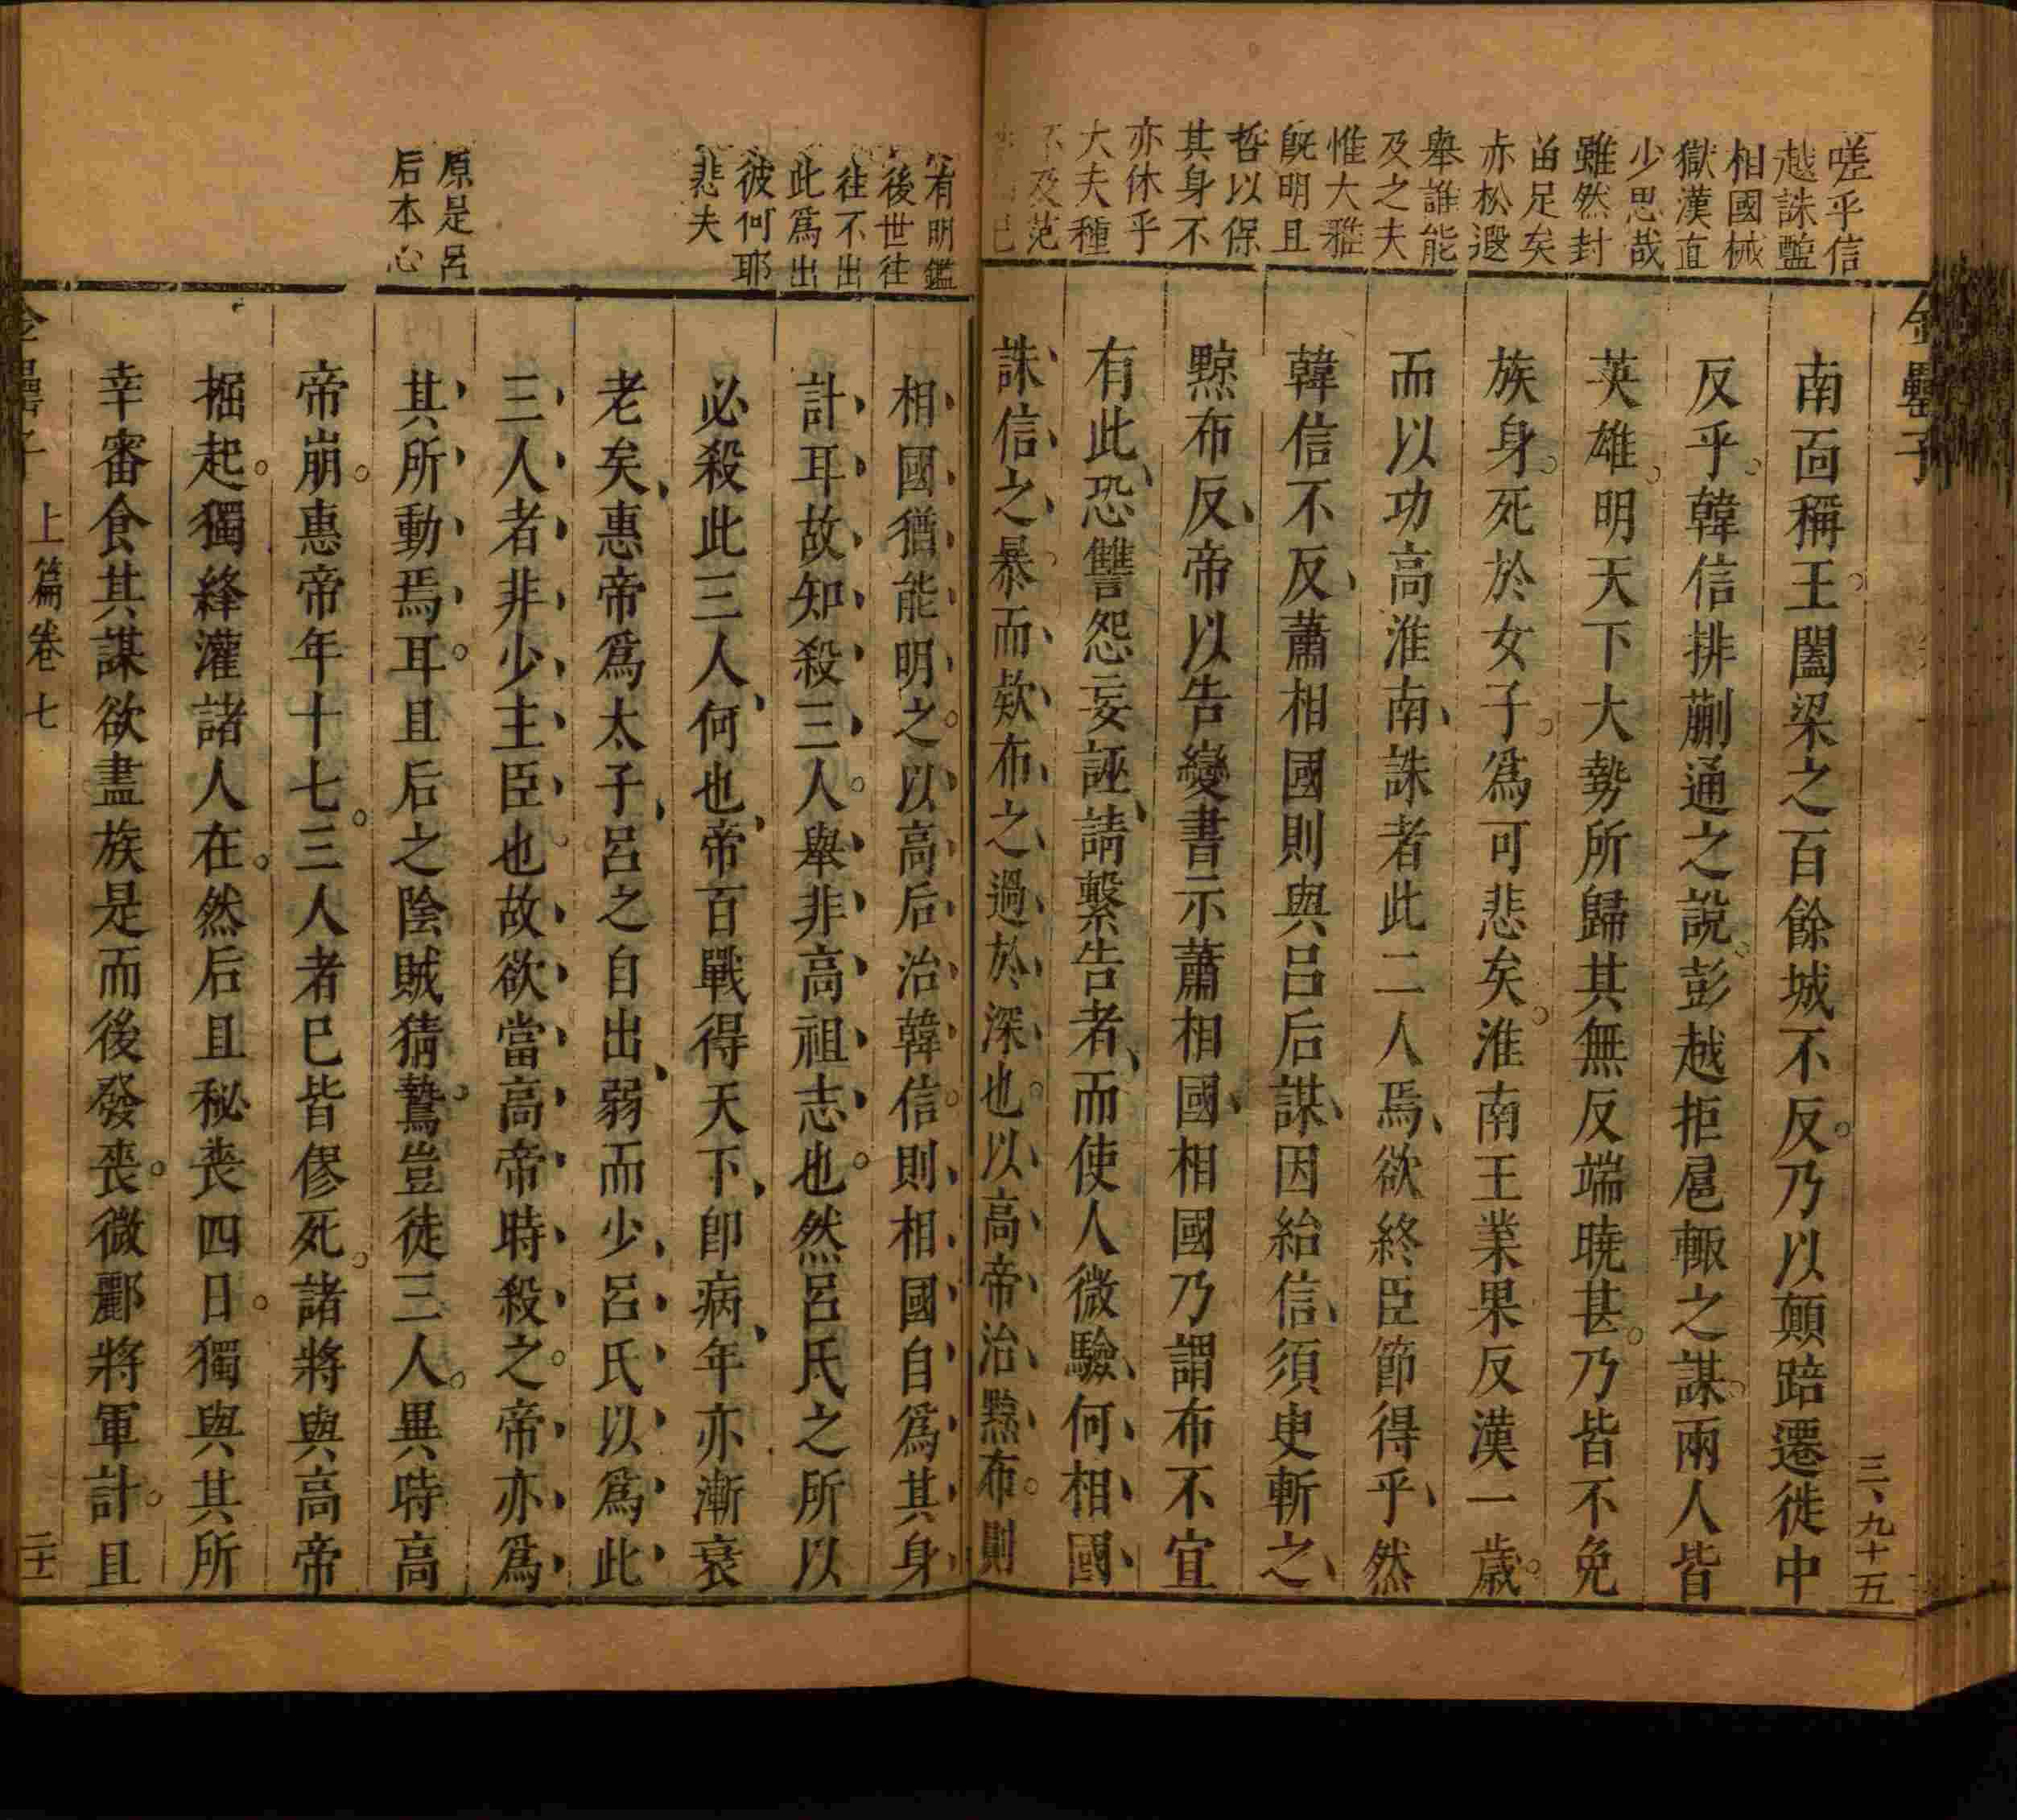 嗟乎信
越誅醢
相國械
獄漢直
少思哉
雖然封
畱足矣
赤松遐
舉誰能
及之夫
惟大雅
旣明且
哲以保
其身不
亦休乎
大夫種
不及范
金罍子
三、九十五
南面稱王。闔梁之百餘城不反。乃以顛踣遷徙中
反乎。韓信排蒯通之說。彭越拒扈輒之謀。兩人皆
英雄。明天下大勢所歸其無反端曉甚。乃皆不免
族身。死於女子。爲可悲矣。淮南王業果反漢一歲。
而以功高淮南、誅者此二人焉、欲終臣節得乎、然
韓信不反、蕭相國則與呂后謀、因紿信、須臾斬之、
黥布反、帝以告變書示蕭相國、相國乃謂布不宜
有此、恐讐怨妄誣、請繫告者、而使人微驗、何、相、國、
誅、信、之、暴。而、欵、布、之、過、於、深、也。以、高、帝、治、黥、布。則
有明鑑
後世往
往不出
此爲出
彼何耶
悲夫
原是呂
后本心
相國猶能明之。以高后治韓信。則相國自爲其身
計耳故知殺三人。舉非高祖志也。然呂氏之所以
必殺此三人、何也、帝百戰得天下、卽病、年亦漸衰
老矣、惠帝爲太子、呂之自出、弱而少、呂氏以爲此
三人者非少主臣也。故欲當高帝時殺之。帝亦爲
其所動焉耳。且后之陰賊猜鷙。豈徒三人。異時高
帝崩。惠帝年十七。三人者巳皆僇死。諸將與高帝
掘起。獨絳灌諸人在。然后且秘喪四日。獨與其所
幸審食其謀欲盡族是而後發喪。微酈將軍計。且
金罍子 上篇卷七 二十一